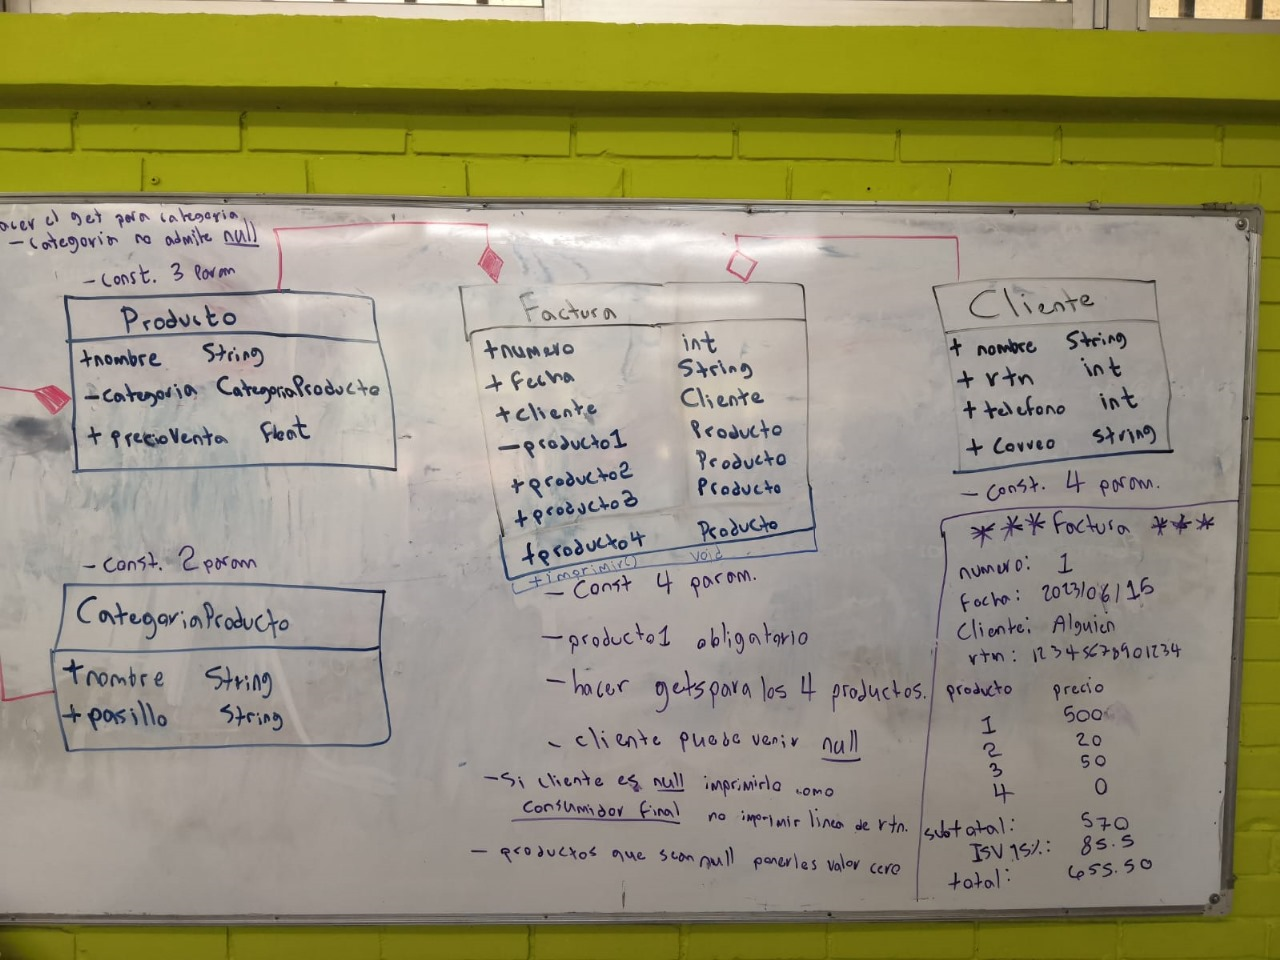 acer el get para categoria
- categoria no admite null
- const. 3 param
Producto
+nombre String
-categoria CategoriaProducto
+ precioVenta float
- const. 2 param
CategoriaProducto
+nombre String
+pasillo String
Factura
+numero int
+ fecha String
+cliente Cliente
-producto1 Producto
+producto2 Producto
+producto3 Producto
+producto4 Producto
+imprimir() void
- Const 4 param.
- producto1 obligatorio
- hacer gets para los 4 productos.
- cliente puede venir null
- Si cliente es null imprimirlo como
consumidor final no imprimir linea de rtn.
- productos que sean null ponerles valor cero
Cliente
+ nombre String
+ rtn int
+ telefono int
+ correo string
- const. 4 param.
*** factura ***
numero: 1
Fecha: 2023/06/15
Cliente: Alguien
rtn: 12345678901234
producto precio
1 500
2 20
3 50
4 0
subtotal: 570
ISV 15%: 85.5
total: 655.50